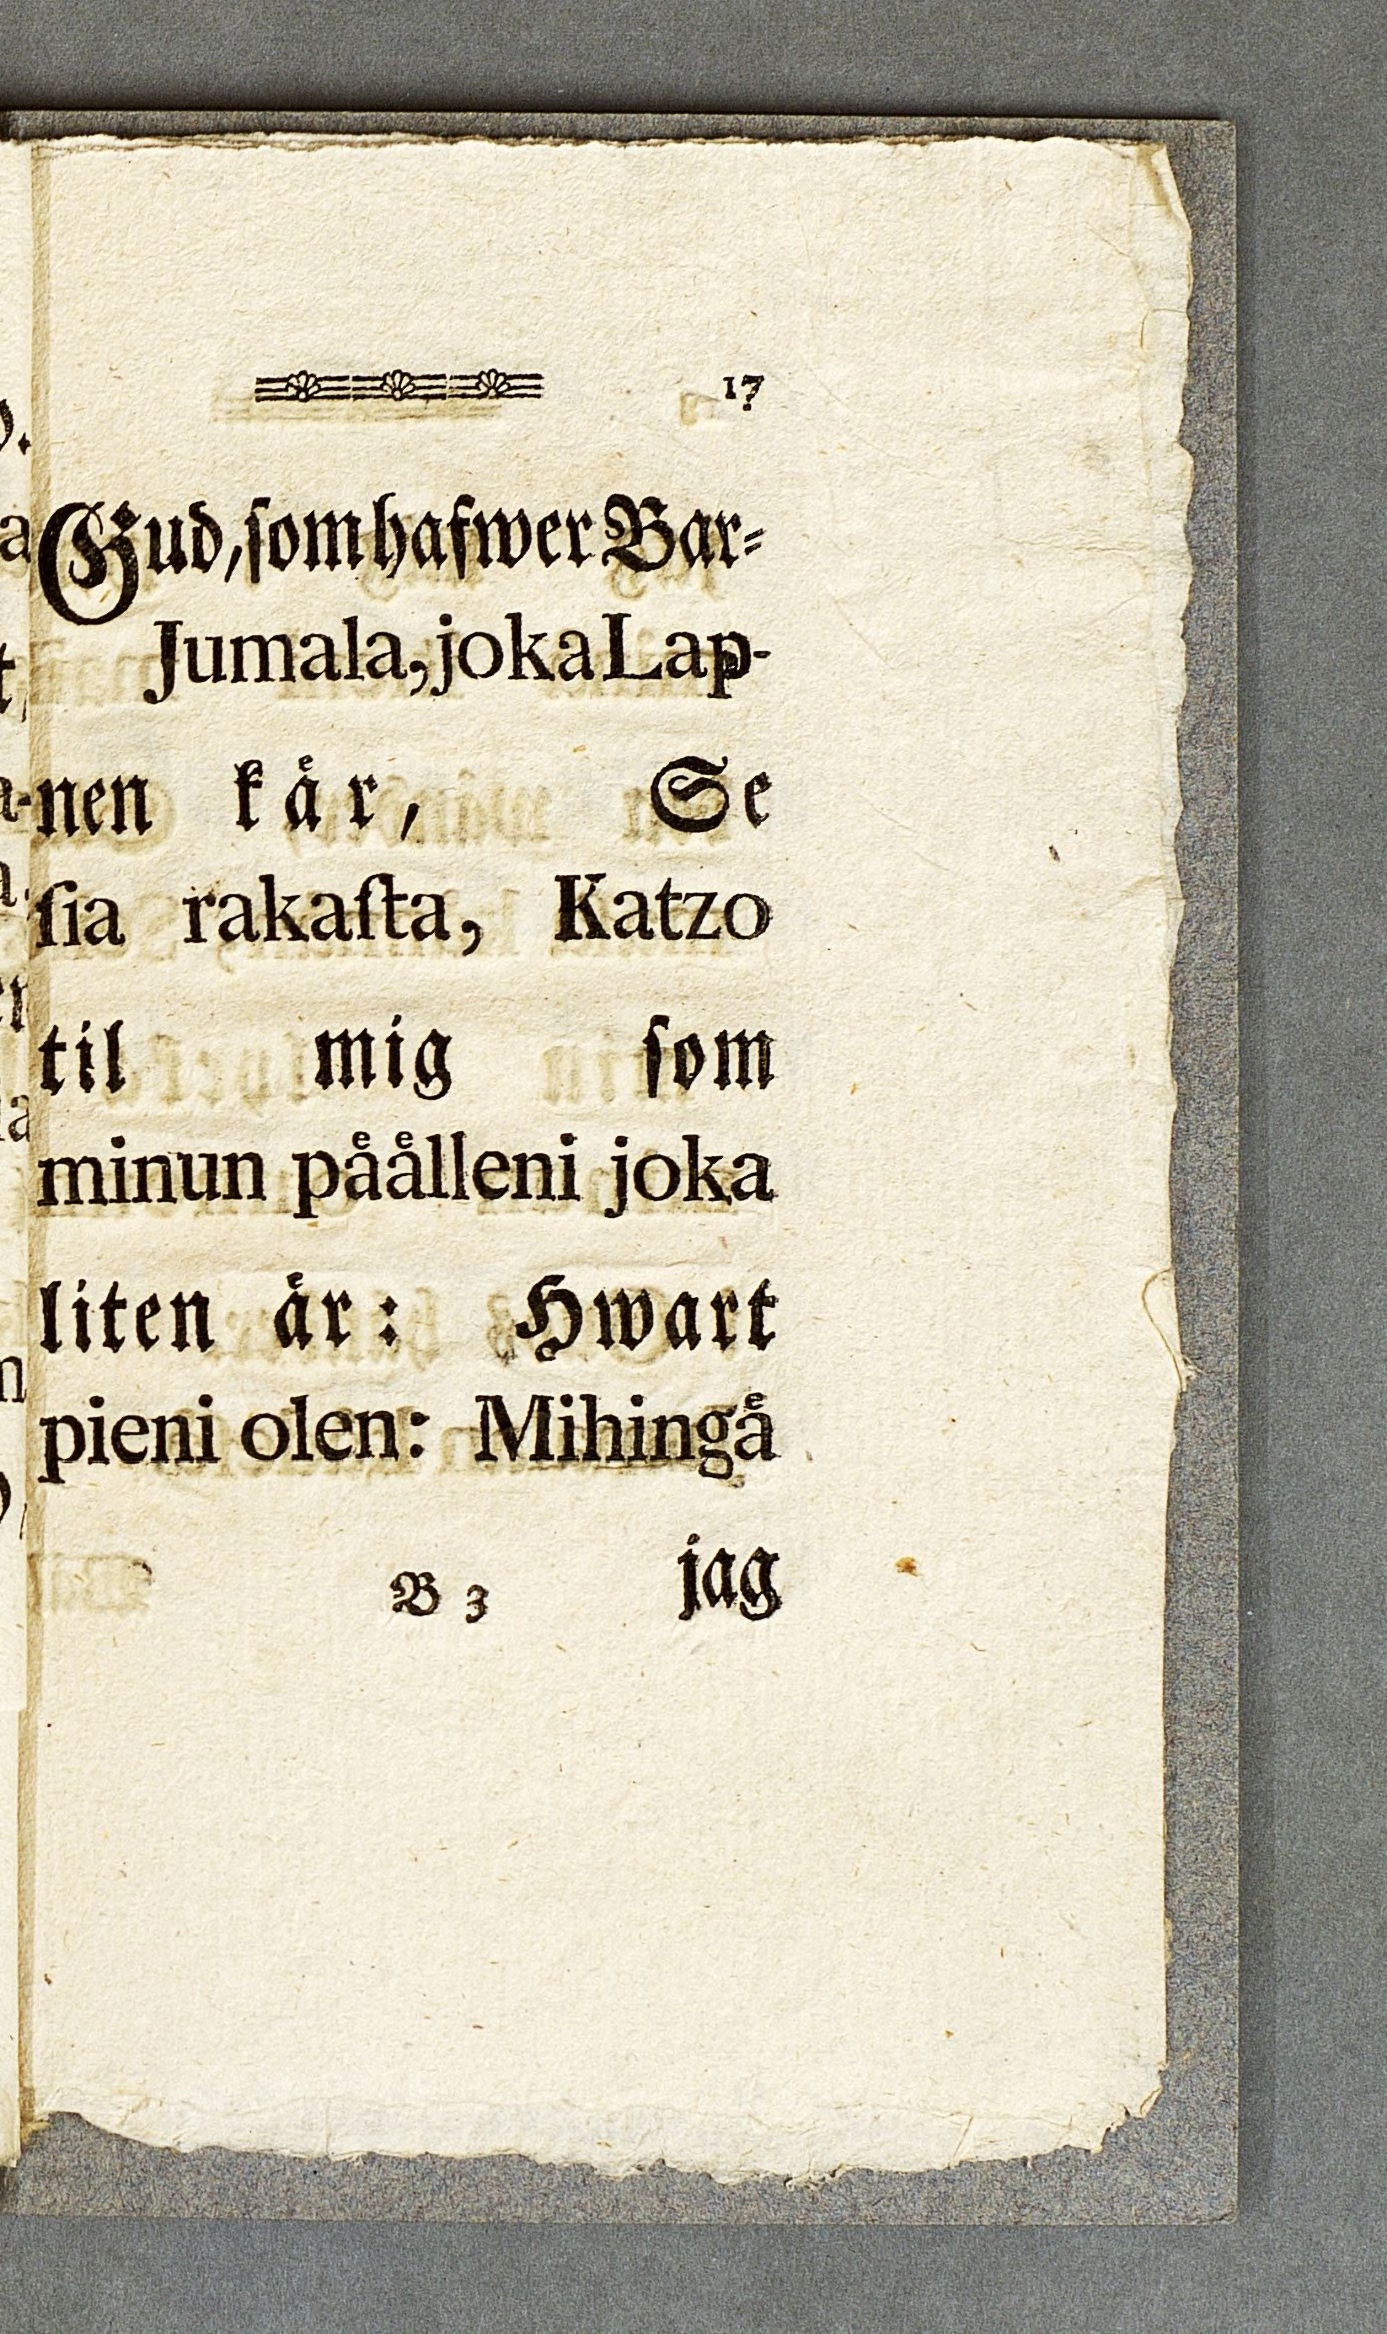 17
Gud, ſom hafwer Bar⸗
Jumala, joka Lap-
nen kaͤr, Se
ſia rakaſta, Katzo
til mig ſom
minun paͤaͤlleni joka
liten aͤr: Hwart
pieni olen: Mihingaͤ
B 3 jag